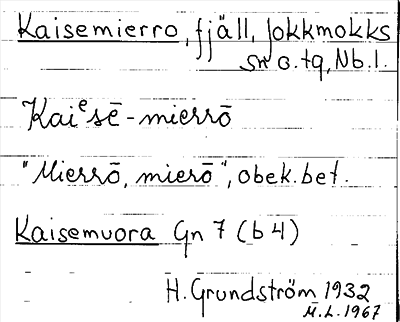 Kaisemierro, fjäll, Jokkmokks
sn o. tg, Nb.l.
Kaiᵉsē-mierrō
"Mierrō, mierō", obek. bet.
Kaisemvora Gn 7 (b 4)
H. Grundström 1932
M.L. 1967